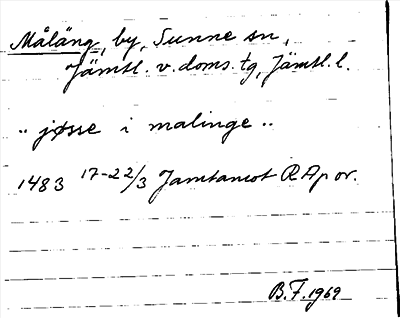 Måläng, by, Sunne sn,
Jämtl. v. doms. tg, Jämtl. l.
.. jøsse i malinge ..
1483 17-22/3 Jamtamot RAp or.
B.F. 1969